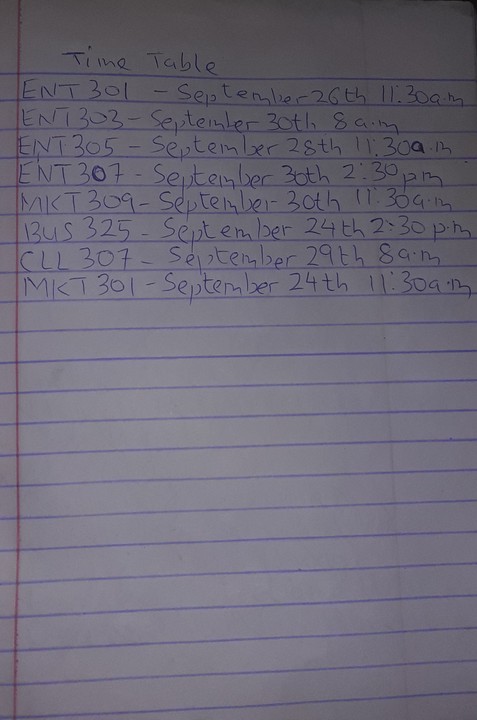 Time Table
ENT 301 - September 26th 11:30a.m
ENT303 - September 30th 8 a.m
ENT305 - September 28th 11:30a.m
ENT307 - September 30th 2:30pm
MKT309 - September 30th 11:30a.m
BUS 325 - September 24th 2:30 p.m
CLL 307 - September 29th 8a.m
MKT301 - September 24th 11:30a.m